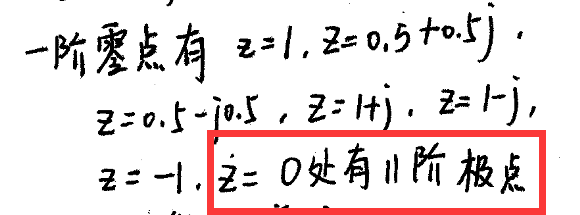 一阶零点有 z=1, z=0.5+0.5j,
z=0.5-j0.5, z=1+j, z=1-j,
z=-1. z=0处有11阶极点